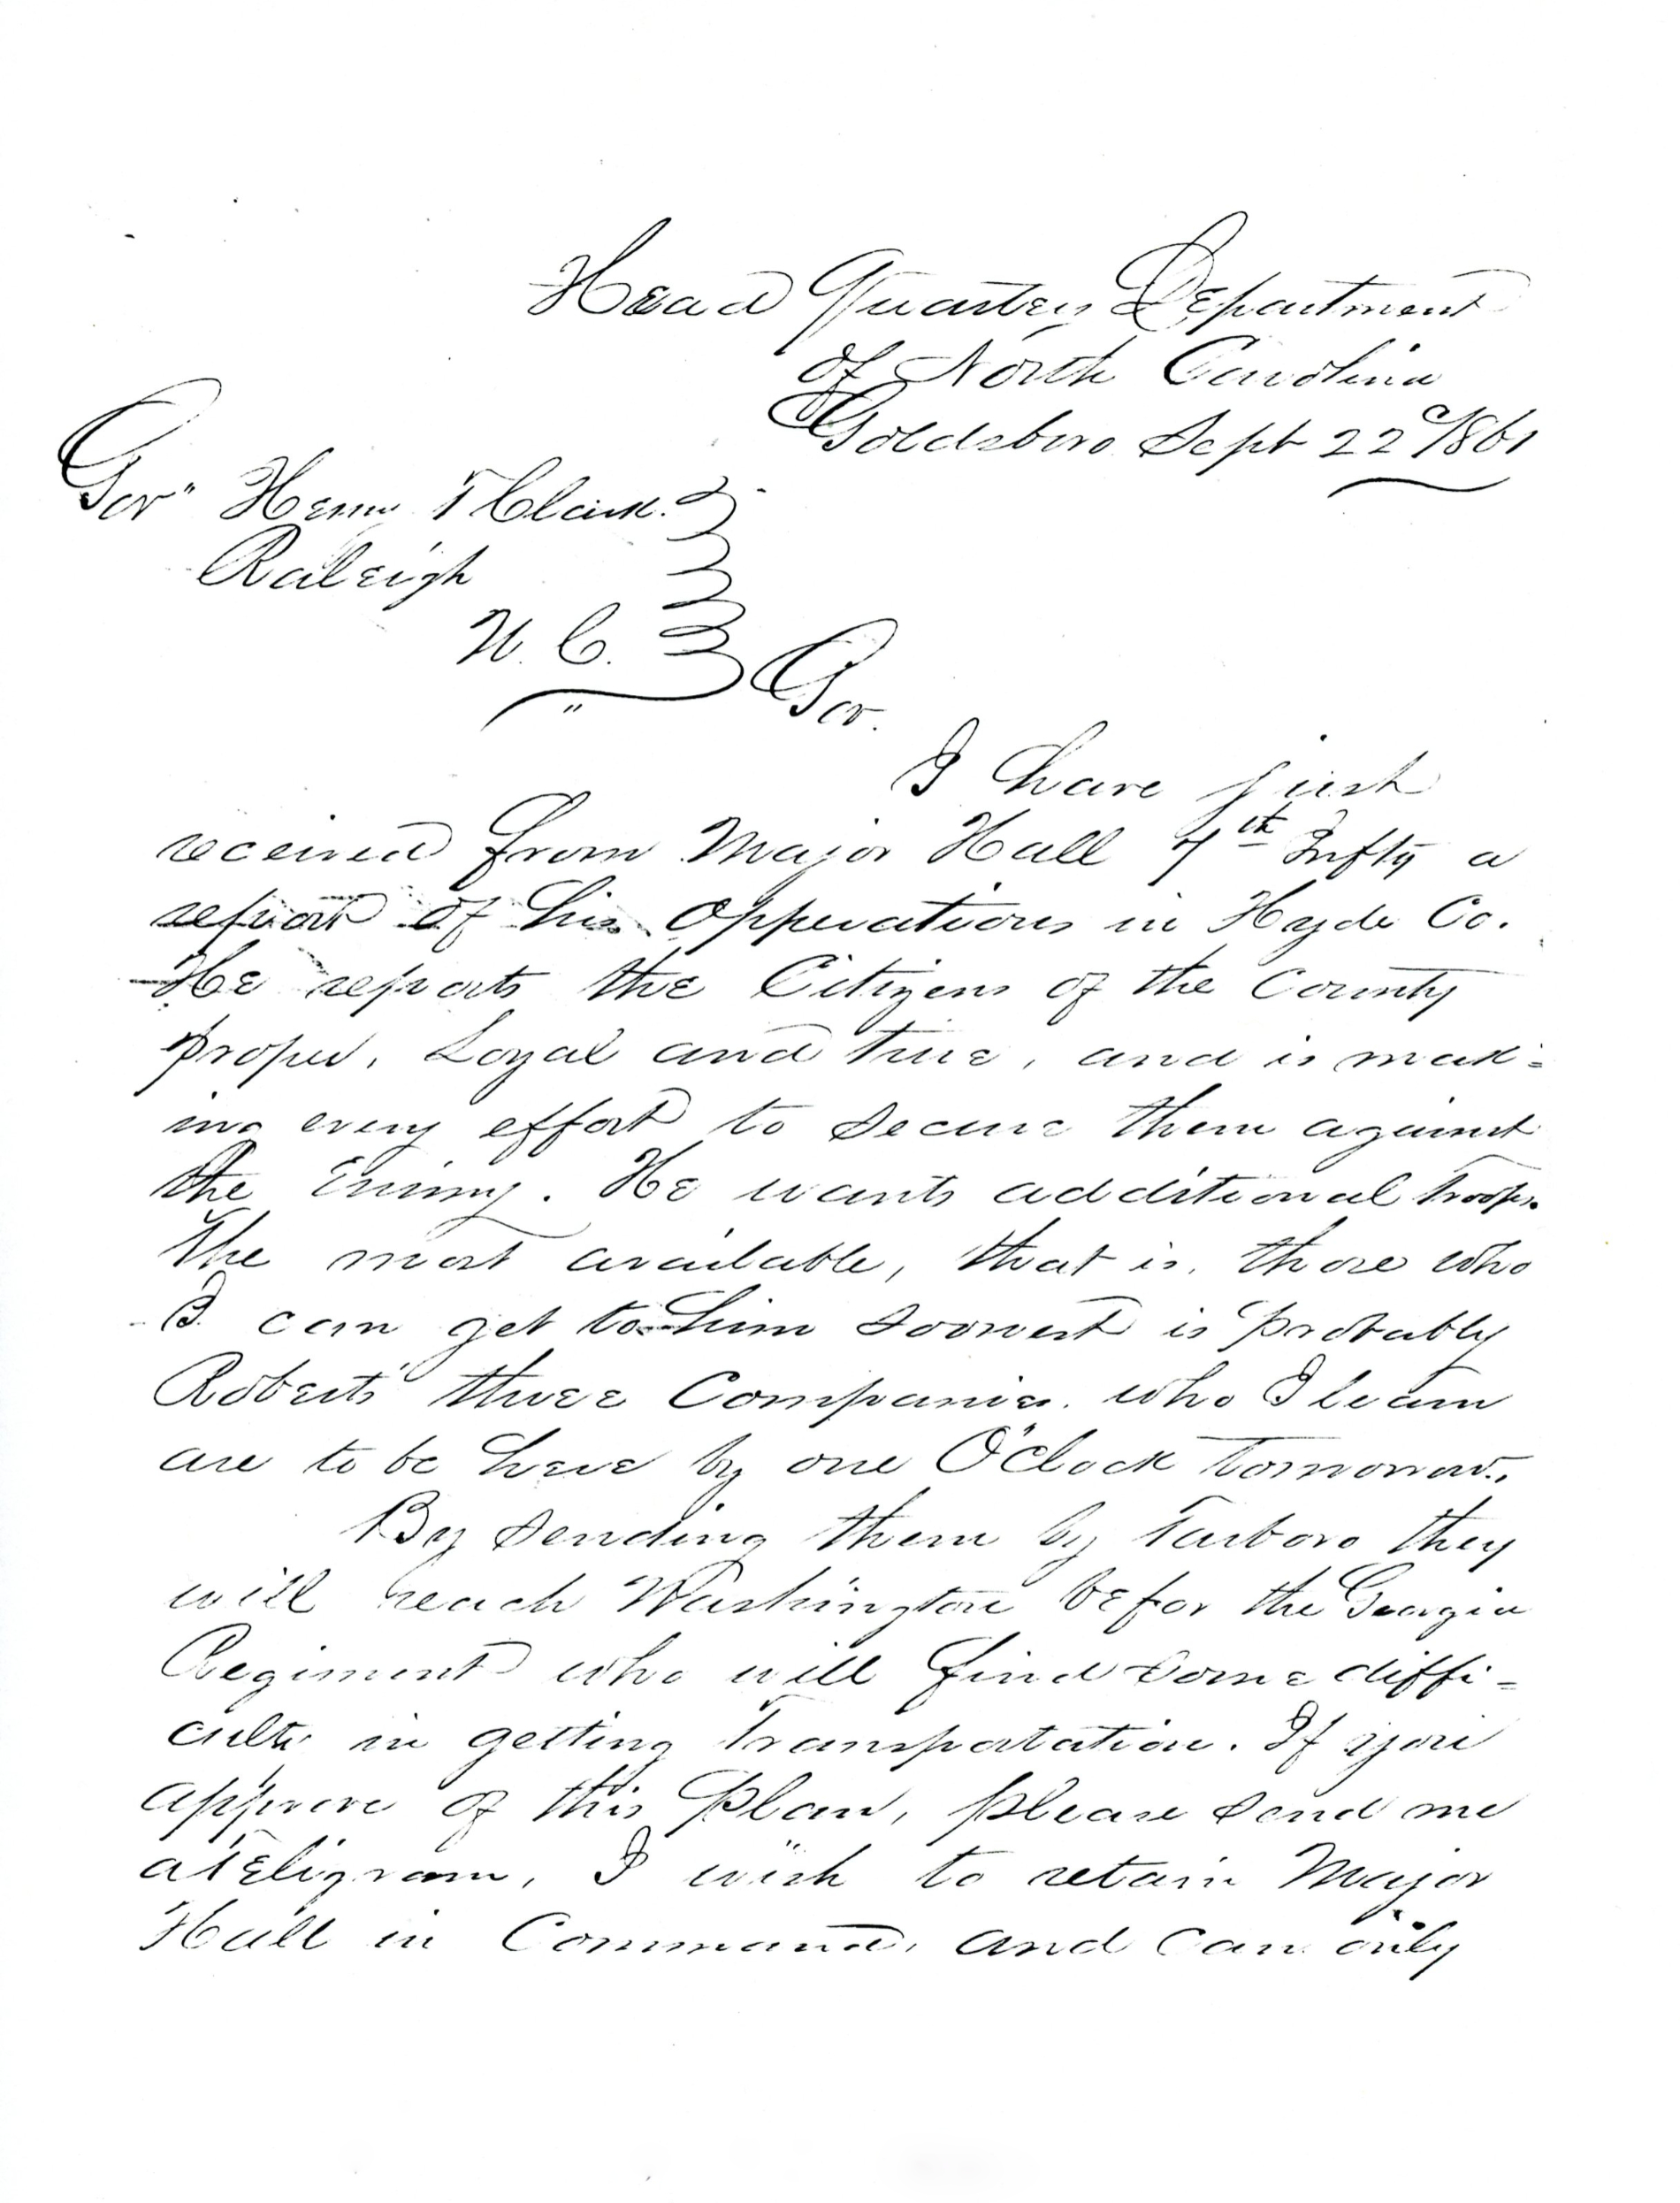 Head Quarters Department
of North Carolina
Goldsboro Sept 22d/861
Gov" Henry T Clark.
Raleigh
N. C.
"
Gov.
I have just
received from Major Hall 7th Infty a
report of his Opperations in Hyde Co.
He reports the Citizens of the County
proper, Loyal and true, and is mak=
ing every effort to secure them against
the Enimy. He wants additional troops.
The most available, that is, those who
I can get to him soonest is probably
Roberts' three Companies. who I learn
are to be here by one O'Clock tomorrow.
By sending them by Tarboro they
will reach Washington befor the Georgia
Regiment who will find some diffi=
culty in getting transportation. If you
approve of this plan, please send me
a teligram, I wish to retain Major
Hall in Command, and can only